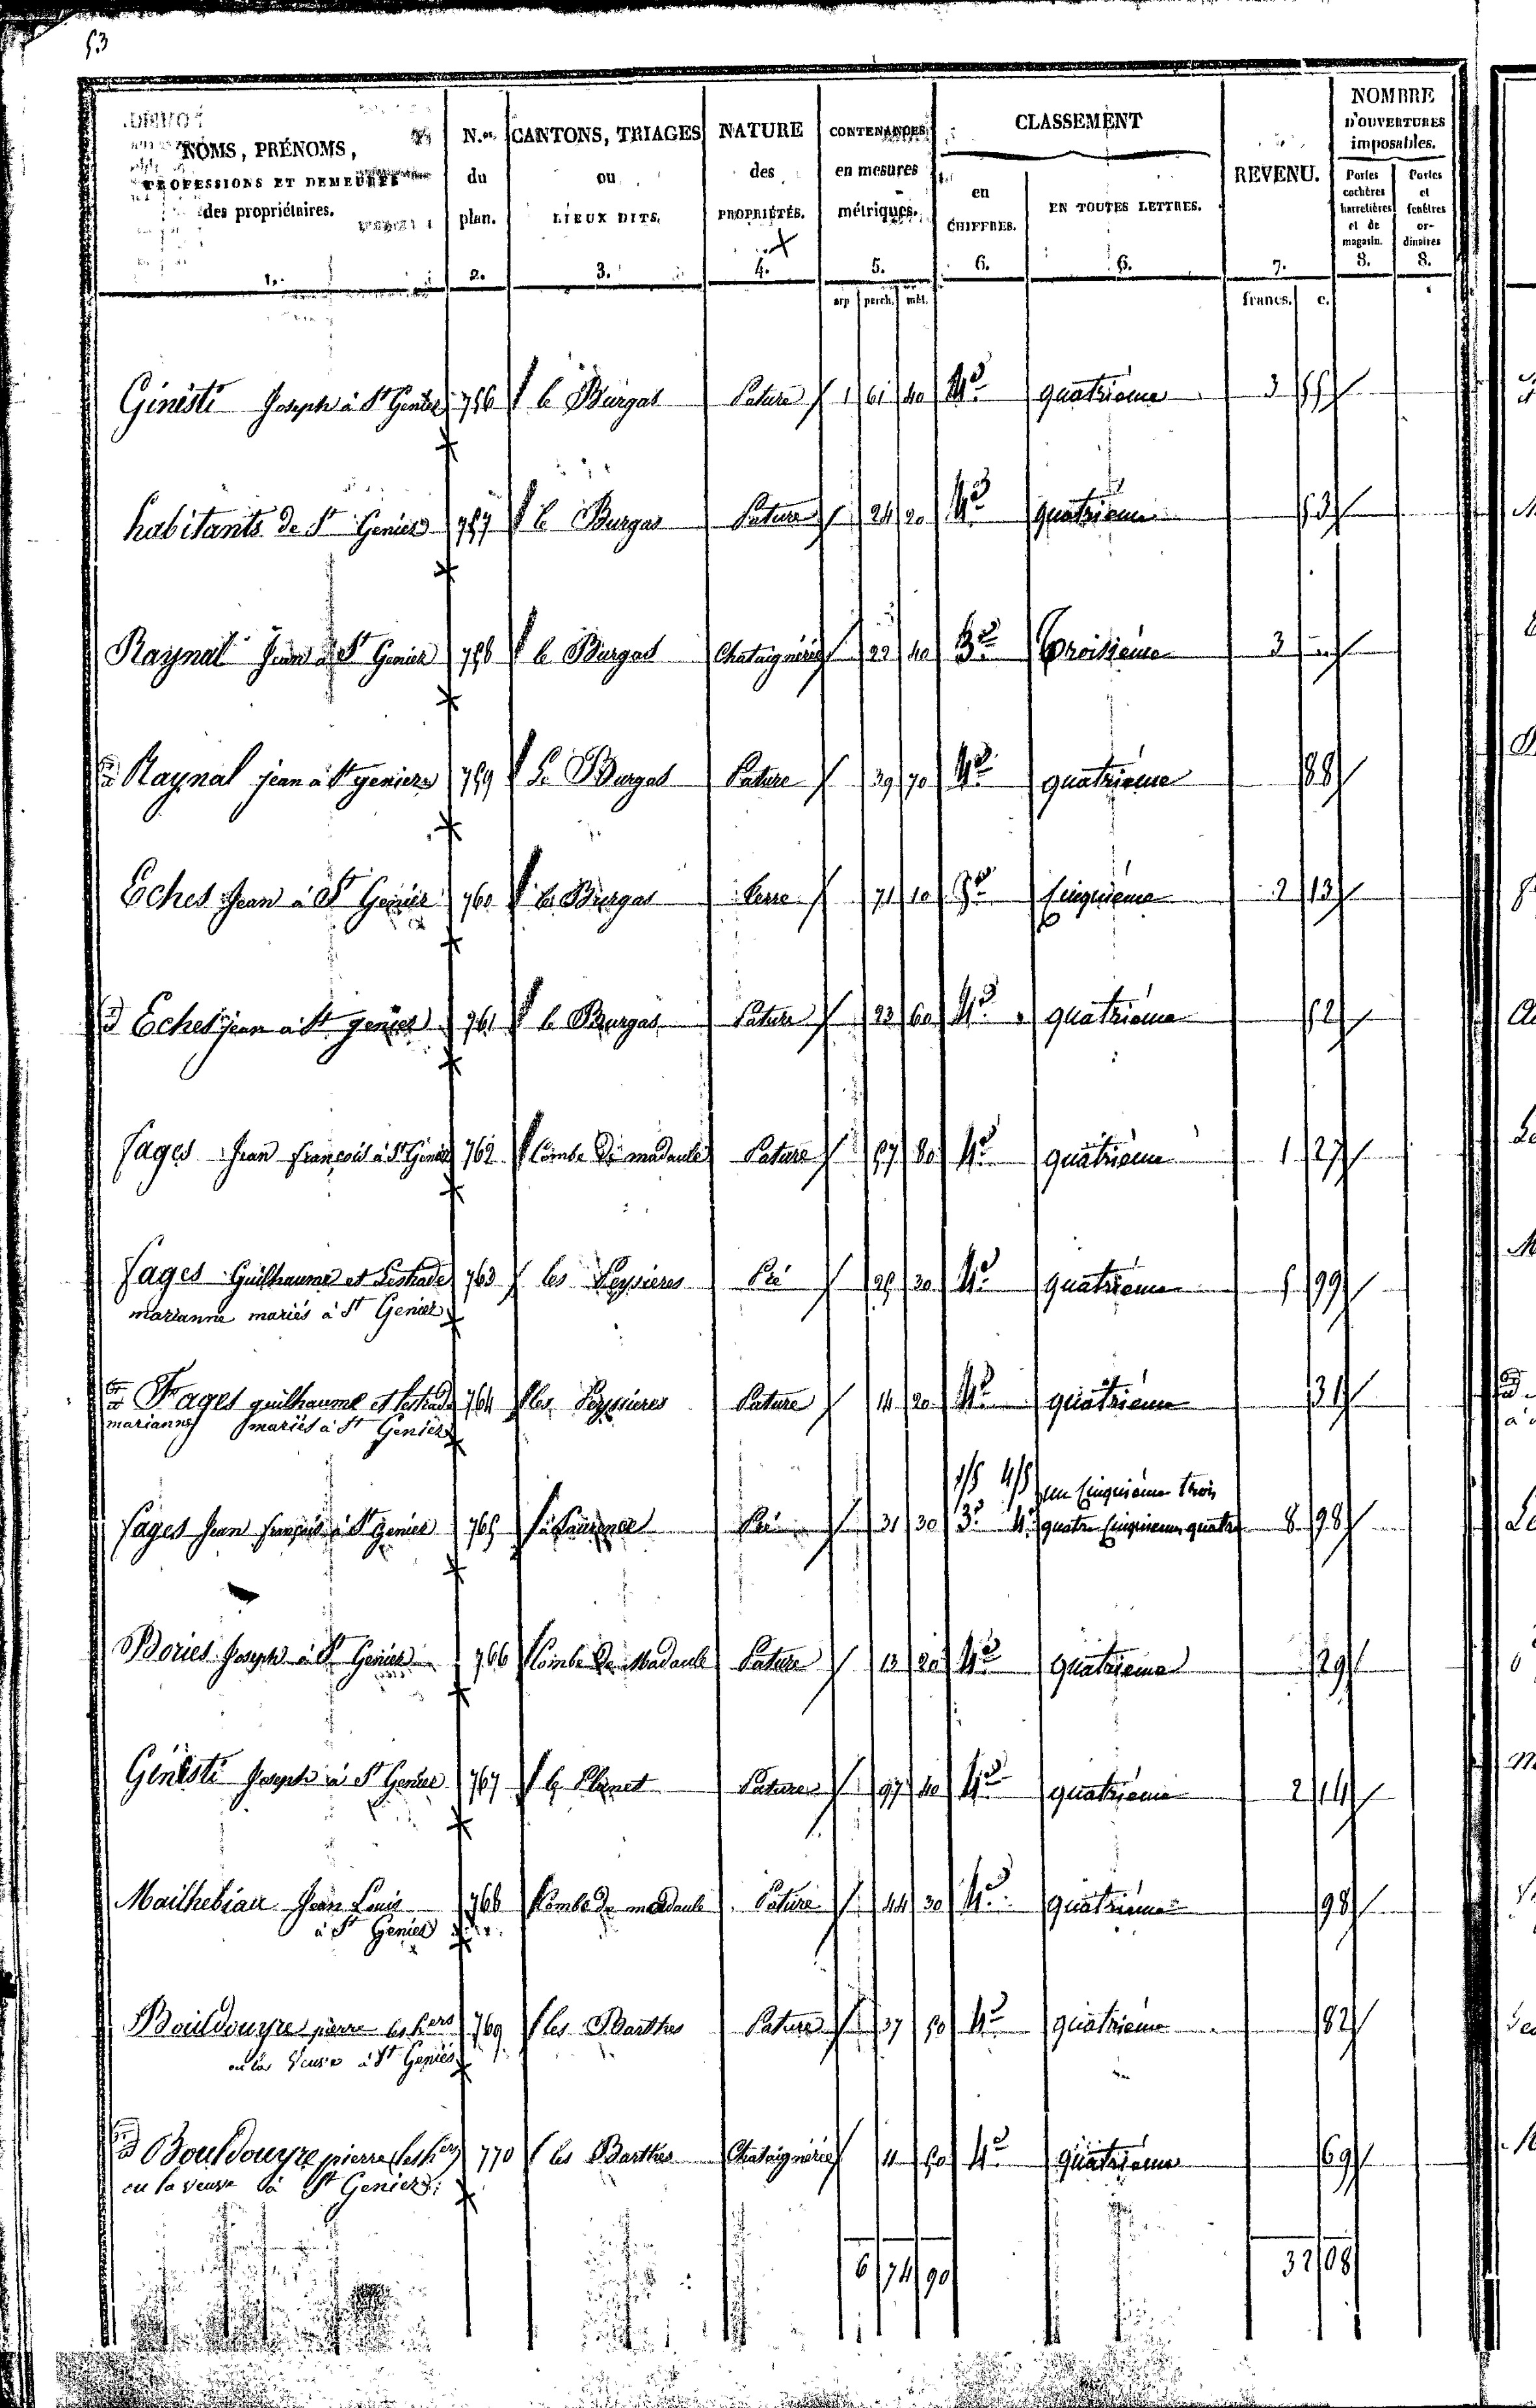 53
NOMS, PRÉNOMS, PROFESSIONS ET DEMEURES des propriétaires. 1.
N.os du plan. 2.
CANTONS, TRIAGES ou LIEUX DITS. 3.
NATURE des PROPRIÉTÉS. 4.
CONTENANCES en mesures métriques. 5.
CLASSEMENT
en CHIFFRES. 6.
EN TOUTES LETTRES. 6.
REVENU. 7.
NOMBRE D'OUVERTURES imposables.
Portes cochères charretières et de magasin. 8.
Portes et fenêtres ordinaires 8.
arp perch. mèt. francs. c.
Ginesti Joseph à St Geniez 756 le Burgas Pature 1 61 40 4e quatrième 3 55
habitants de St Geniez 757 le Burgas Pature 24 20 4e quatrième 53
Raynal Jean à St Geniez 758 le Burgas Chataigneraie 22 40 3e Troisième 3
Raynal jean à St geniez 759 Le Burgas Pature 39 70 4e quatrième 88
Eches Jean à St Geniez 760 le Burgas terre 71 10 5e Cinquième 2 13
Eches jean à St geniez 761 le Burgas Pature 23 60 4e quatrième 52
fages Jean françois à St Geniez 762 Combe de madaule Pature 57 80 4e quatrième 1 27
fages Guilhaume et Lestrade 763 les Peysieres Pré 25 30 4e quatrième 5 99
marianne mariés à St Geniez
Fages guilhaume et lestrade 764 les Peyssieres Pature 14 20 4e quatrième 31
marianne mariés à St Geniez
1/5 4/5 un Cinquième trois
fages Jean françois à St Geniez 765 Pré 31 30 3e 4e quatre Cinquièmes quatre 8 98
Bories Joseph à St Geniez 766 Combe de Madaule Pature 13 20 4e quatrième 29
Ginesti Joseph à St Geniez 767 le Planet Pature 97 40 4e quatrième 2 14
Mailhebiau Jean Louis 768 Combe de madaule Pature 44 30 4e quatrième 98
à St Geniez
Bouldouyre pierre les hers 769 les Barthes Pature 37 50 4e quatrième 82
ou la Veuve à St Geniès
Bouldouyre pierre les hers 770 les Barthes Chataigneraie 11 50 4e quatrième 69
ou la veuve à St Geniez
6 74 90 32 08